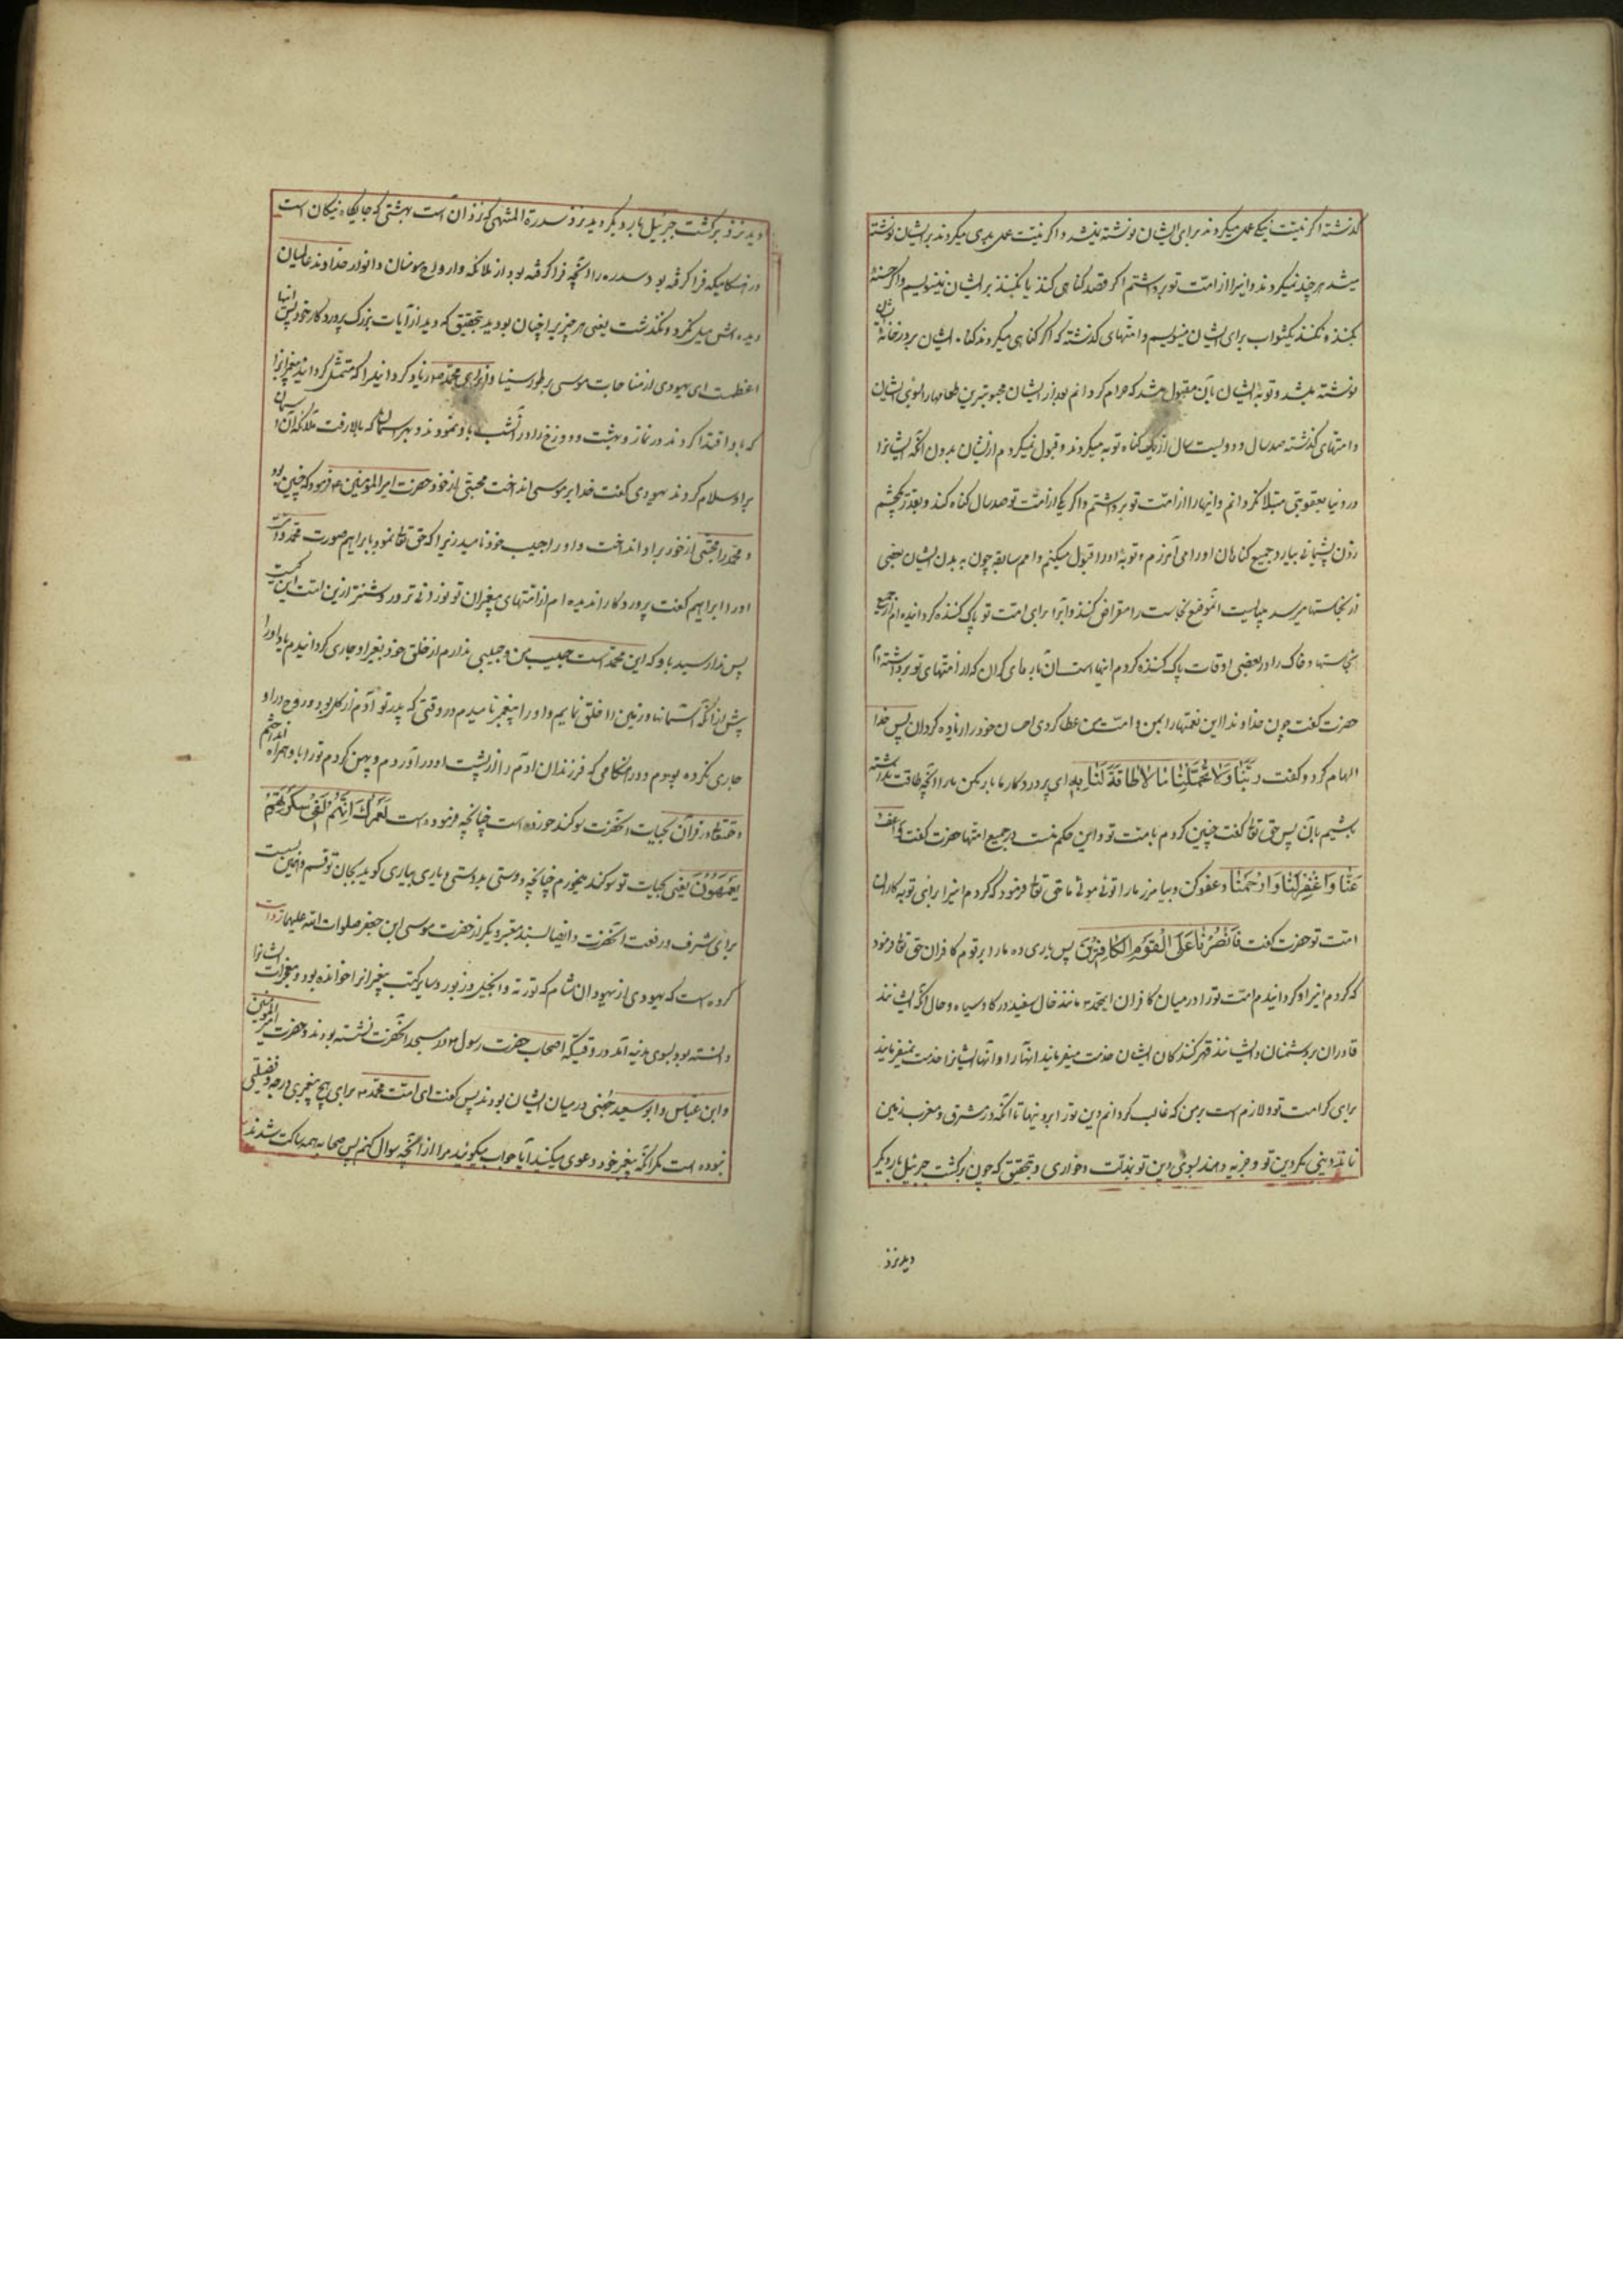 گذشته اگر نیت نیکی عملی میکردند برای ایشان نوشته نمیشد و اگر نیت عمل بدی میکردند بر ایشان نوشته
میشد هر چند نمیکردند و اینرا از امت تو برداشتم اگر قصد گناهی کنند یا نکنند بر ایشان نمینویسم و اگر حسنهٔ
بکنند و نکنند یکثواب برای ایشان مینویسم و امتهای گذشته که اگر گناهی میکردند گناه ایشان بر در خانهٔ شان
نوشته میشد و توبهٔ ایشان باین مقبول میشد که حرام گردانم بعد از ایشان محبوبترین طعامها را بسوی ایشان
و امتهای گذشته صد سال و دویست سال از یک گناه توبه میکردند و قبول نمیکردم از ایشان بدون آنکه ایشانرا
در دنیا بعقوبتی مبتلا گردانم و اینها را از امت تو برداشتم و اگر یکی از امت تو صد سال گناه کند و بقدر یکچشم
زدن پشیمانی بیارد جمیع گناهان او را می آمرزم و توبهٔ او را قبول میکنم و امم سابقه چون به بدن ایشان بعضی
از نجاستها میرسد میبایست آنموضع نجاست را مقراض کنند و آبرا برای امت تو پاک کننده گردانیده ام از جمیع
نجاستها و خاک را در بعضی اوقات پاک کننده کردم اینها است آن بارهای گران که از امتهای تو برداشته ام
حضرت گفت چون خداوندا این نعمتها را بمن و امت من عطا کردی احسان خود را زیاده گردان پس خدا
الهام کرد و گفت رَبَّنَا وَلَا تُحَمِّلْنَا مَا لَا طَاقَةَ لَنَا بِهِ ای پروردگار ما بار مکن ما را آنچه طاقت نداشته
باشیم بآن پس حق تعا گفت چنین کردم بامت تو و این حکم منست در جمیع امتها حضرت گفت وَاعْفُ
عَنَّا وَاغْفِرْ لَنَا وَارْحَمْنَا و عفو کن و بیامرز ما را توئی مولای ما حق تعا فرمود که کردم اینرا برای توبه کاران
امت تو حضرت گفت فَانْصُرْنَا عَلَی الْقَوْمِ الْکَافِرِینَ پس یاری ده ما را بر قوم کافران حق تعا فرمود
که کردم اینرا و گردانیدم امت تو را در میان کافران ایمحمد مانند خال سفید در گاو سیاه و حال آنکه ایشانند
قادران بر دشمنان و ایشانند قهر کنندگان ایشان خدمت میفرمایند آنها را و آنها ایشانرا خدمت نمیفرمایند
برای کرامت تو و لازم است بر من که غالب گردانم دین تو را بر دینها تا آنکه در مشرق و مغرب زمین
نماند دینی مگر دین تو و جزیه دهند بسوی دین تو بذلت و خواری و بتحقیق که چون برگشت جبرئیل بار دیگر
دید نزد
دید نزد برگشت جبرئیل بار دیگر دید نزد سدرة المنتهی که نزد آن است بهشتی که جایگاه نیکان است
در هنگامیکه فرا گرفته بود سدره را آنچه فرا گرفته بود از ملائکه و ارواح مومنان و انوار خداوند عالمیان
دیده اش میل نکرد و نگذشت یعنی هر چیز را چنان بود دید بتحقیق که دید از آیات بزرگ پروردگار خود پس اینها
اعظمست ای یهودی از مناجات موسی بر طور سینا و از برای محمد زیاد گردانید را که متمثل گردانید پیغمبرانرا
که باو اقتدا کردند در نماز و بهشت و دوزخ را در آنشب باو نمودند و بهر آسمان که بالا رفت ملائکه آن آسمان
بر او سلام کردند یهودی گفت خدا بر موسی انداخت محبتی از خود حضرت امیر المؤمنین فرمود که چنین بود
و محمد را محبتی از خود بر او انداخت و او را حبیب خود نامید زیرا که حق تعا نمود بابراهیم صورت محمد و امت
او را ابراهیم گفت پروردگارا ندیده ام از امتهای پیغمبران تو نورانی تر و روشنتر ازین امت این کیست
پس ندا رسید باو که این محمد است حبیب من و حبیبی ندارم از خلق خود بغیر او جاری گردانیدم یاد او را
پیش از آنکه آسمانها و زمین را خلق نمایم و او را پیغمبر نامیدم در وقتی که پدر تو آدم از گل بود و روح در او
جاری نکرده بودم و در هنگامی که فرزندان آدم را از پشت او در آوردم و پهن کردم تو را باو همراه انداختم
و حقتعا در قرآن بحیات آنحضرت سوگند خورده است چنانچه فرموده است لَعَمْرُکَ اِنَّهُمْ لَفِی سَکْرَتِهِمْ
یَعْمَهُونَ یعنی بحیات تو سوگند میخورم چنانچه دوستی بدوستی و یاری بیاری گوید بجان تو قسم و همین بس است
برای شرف و رفعت آنحضرت و ایضا بسند معتبر دیگر از حضرت موسی ابن جعفر صلوات الله علیهما روایت
کرده است که یهودی از یهودان شام که توریة و انجیل و زبور و سایر کتب پیغمبرانرا خوانده بود و معجزات ایشانرا
دانسته بود بسوی مدینه آمد در وقتیکه اصحاب حضرت رسول در مسجد آنحضرت نشسته بودند و حضرت امیر المؤمنین
و ابن عباس و ابو سعید جهنی در میان ایشان بودند پس گفت ای امت محمد برای هیچ پیغمبری درجه و فضیلتی
نبوده است مگر آنکه پیغمبر خود دعوی میکنید آیا جواب میگوئید مرا از آنچه سوال کنم پس صحابه همه ساکت شدند